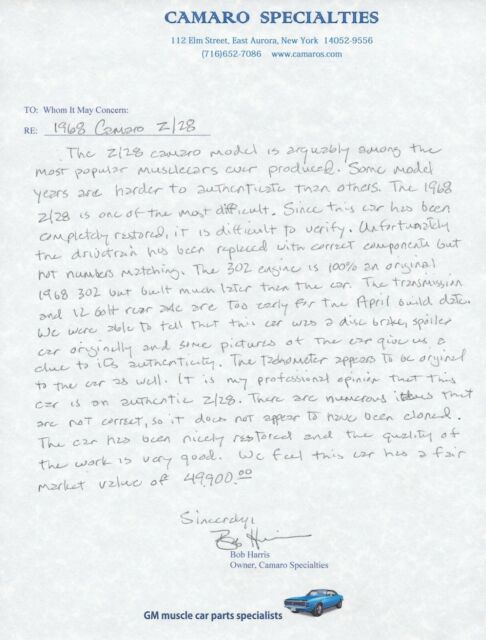 CAMARO SPECIALTIES
112 Elm Street, East Aurora, New York 14052-9556
(716)652-7086 www.camaros.com
TO: Whom It May Concern:
RE: 1968 Camaro Z/28
The Z/28 camaro model is arguably among the
most popular musclecars ever produced. Some model
years are harder to authenticate than others. The 1968
Z/28 is one of the most difficult. Since this car has been
completely restored, it is difficult to verify. Unfortunately
the drivetrain has been replaced with correct components but
not numbers matching. The 302 engine is 100% an original
1968 302 but built much later then the car. The transmission
and 12 bolt rear axle are too early for the April build date.
We were able to tell that this car was a disc brake, spoiler
car originally and some pictures of the car give us a
clue to its authenticity. The tachometer appears to be original
to the car as well. It is my professional opinion that this
car is an authentic Z/28. There are numerous items that
are not correct, so it does not appear to have been cloned.
The car has been nicely restored and the quality of
the work is very good. We feel this car has a fair
market value of 49,900.00
Sincerely,
Bob Harris
Bob Harris
Owner, Camaro Specialties
GM muscle car parts specialists